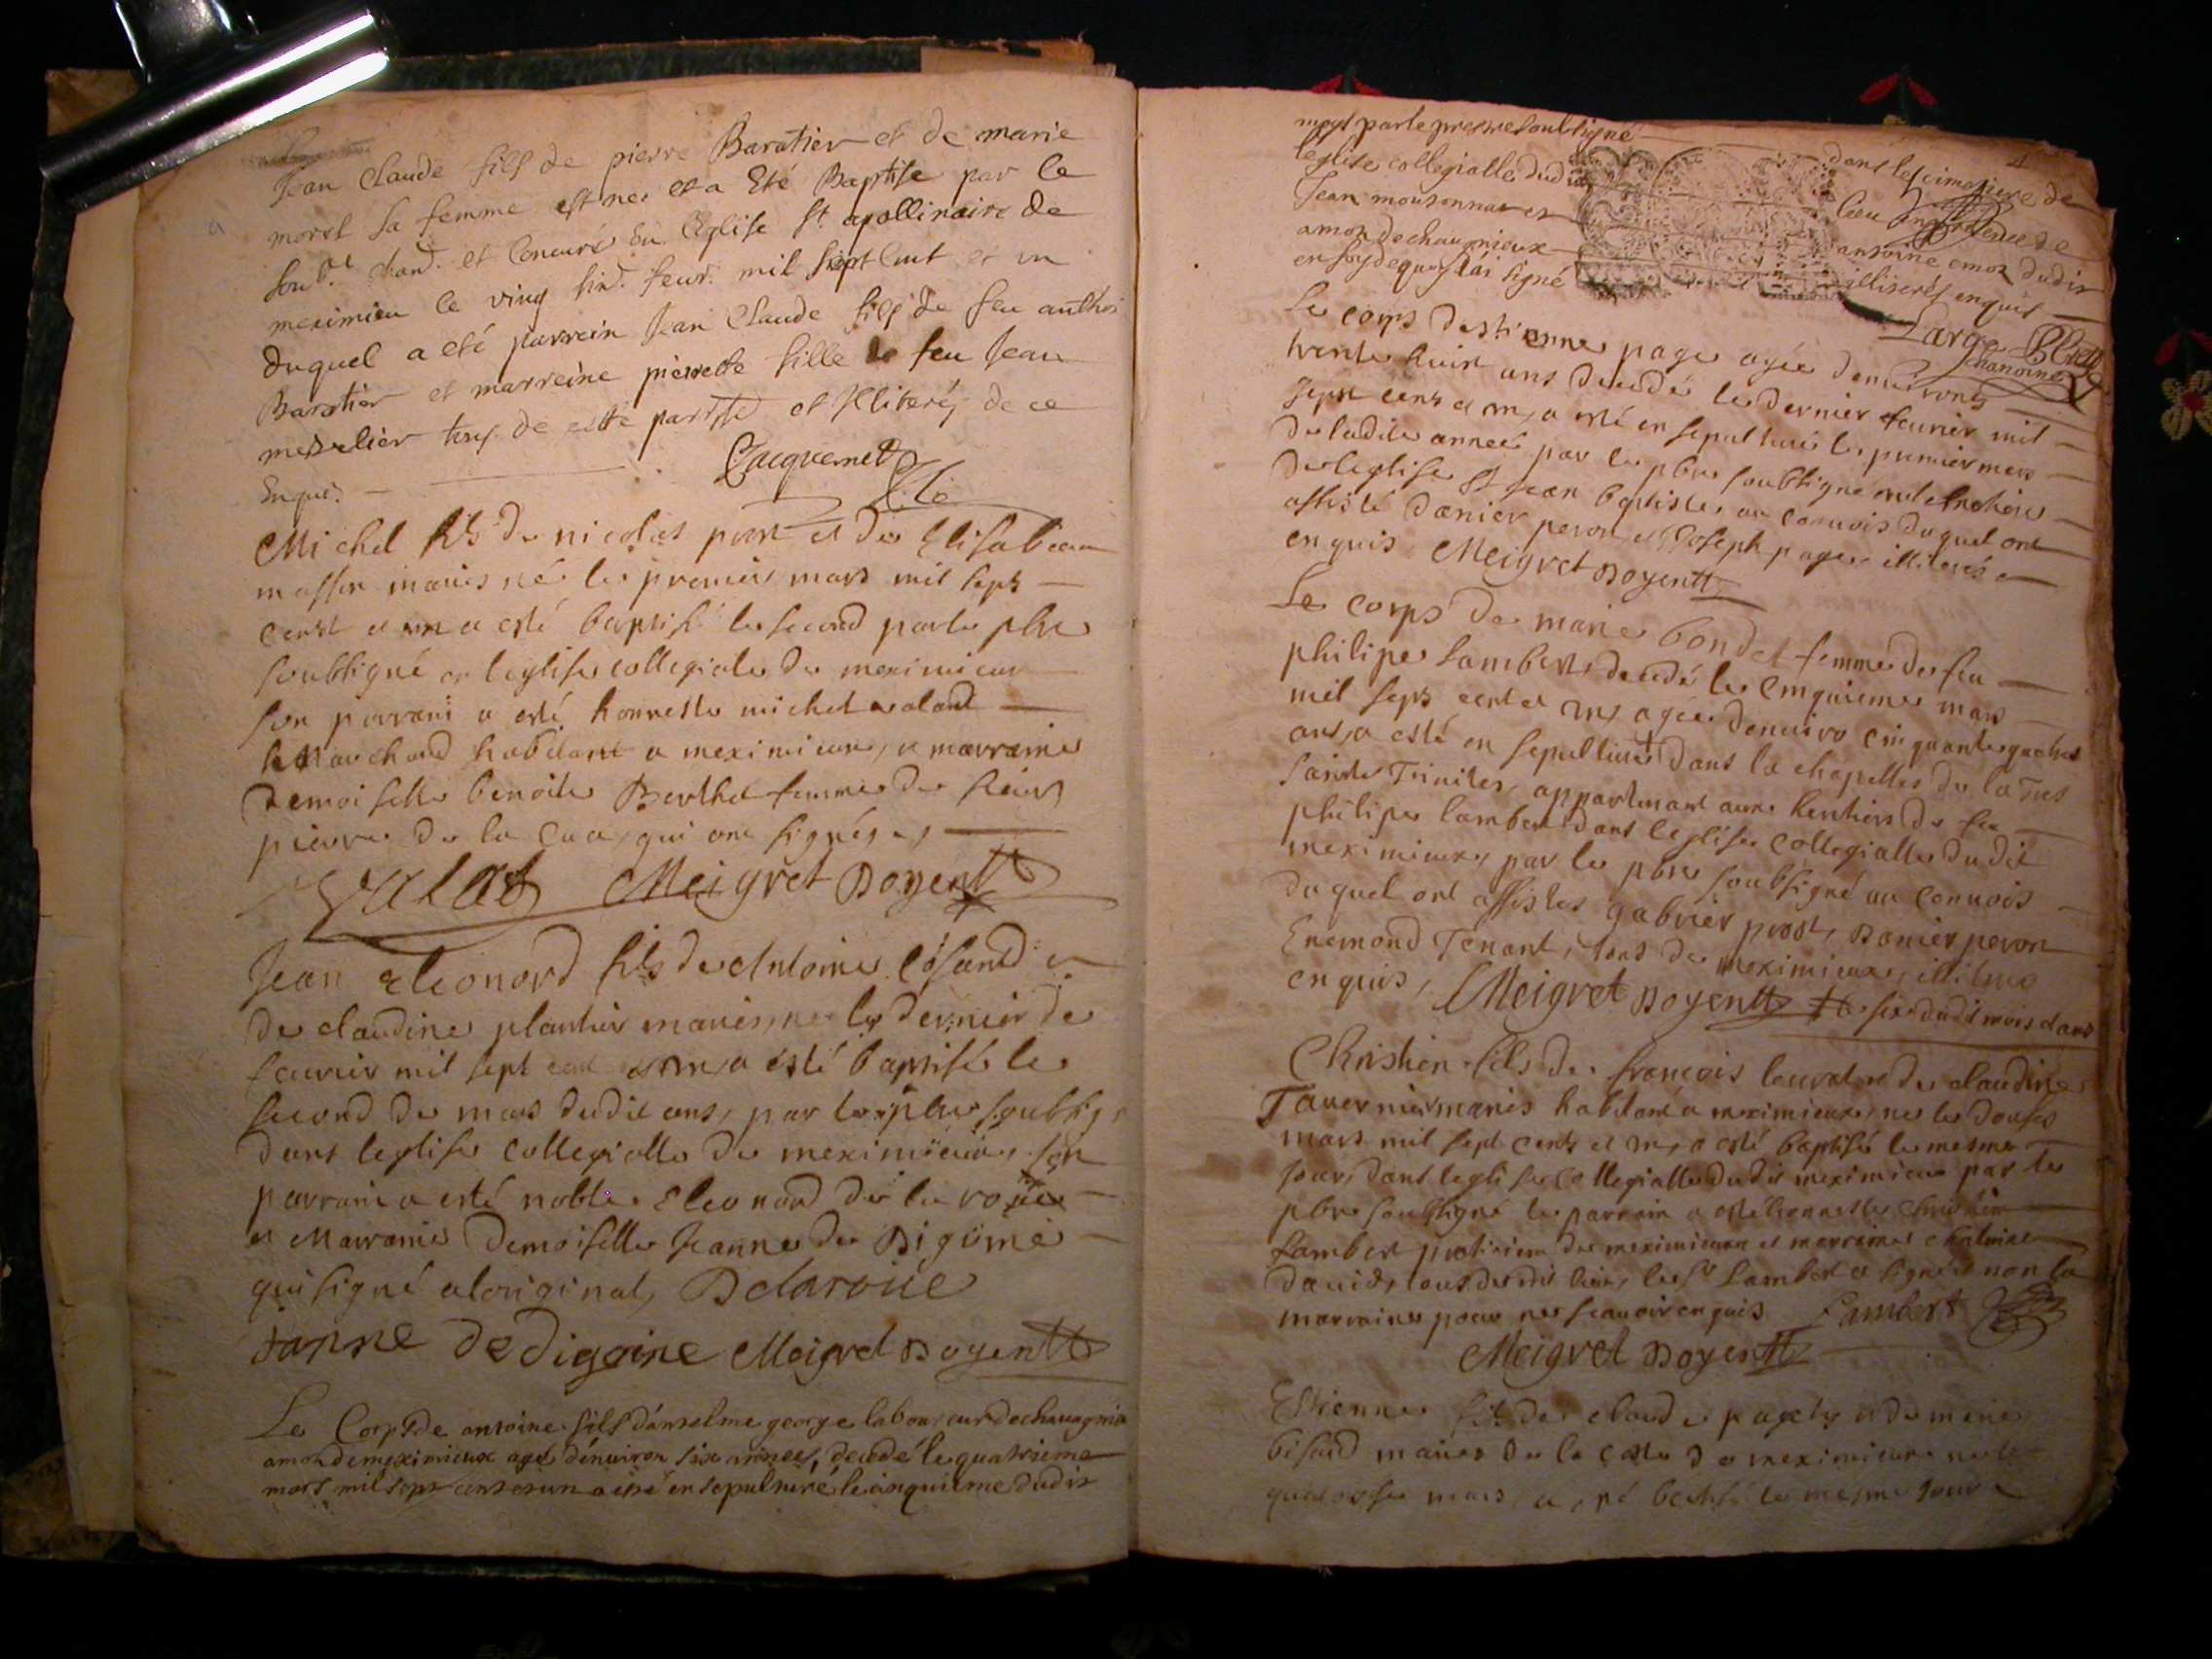 Jean Claude fils de pierre Baratier et de marie
morel sa femme est né et a Eté Baptise par le
soub.né chan.d et Concuré En l'Eglise St apollinaire de
meximieu le ving sin. feur. mil sept Cent et un
duquel a eté parrein Jean Claude fils de feu anthoi
Baratier et marreine pierrette fille de feu Jean
tous de cette parisse et Illiterés de ce
Enquis
Jacquemet
Michel fils de nicolas et de Elisabeau
masson mariés né le premier mars mil sept
cent et un a esté baptisé le second par le pbre
soubsigné en leglise collegiale de meximieux
son parrain a esté honneste michel valand
marchand habitant a meximieux, et marraine
demoiselle benoite Berthet femme de sieur
pierre de la qui ont signés
Valad Meigret Doyen
Jean Eleonord fils de Antoine et
de claudine plantier mariés, né le dernier de
feurier mil sept cent et un a esté baptisé le
second de mars dudit ans, par le pbre soubsig
dans leglise collegialle de meximieux, son
parrain a esté noble Eleonord de la roüe
et Marraine demoiselle Jeanne de Digoine
qui signé a loriginal, Delaroüe
Janne De Digoine Meigret Doyen
Le Corps de antoine fils d'anselme george laboureur de chauagnieu
amon de meximieux agé d'enuiron six années, decedé le quatrieme
mars mil sept cent et un a esté ensepulturé le cinquieme dudit
moys par le prestre soubsigné dans le cimetiere de
leglise collegialle dudit lieu en presence de
Jean mousonnat et antoine amon dudit
amon de chauagnieux illiterés enquis
en foy de quoy iái signé Large
chanoine
Le corps destienne page agée denuirons
trente huit ans decedée le dernier feurier mil
sept cent et un, a esté ensepulturée le premier mars
de ladite année par le pbre soubsigné
de leglise St Jean baptiste au conuois duquel ont
assisté danier peron et Joseph page illiterés
enquis Meigret Doyen
Le corps de marie bondet femme de feu
philipe Lambert, decedé le cinquieme mars
mil sept cent et un, agee denuiron cinquante quatre
ans, a esté ensepulturé dans la chapelle de la tres
sainte Trinité, appartenant aux heritiers de feu
philipe lambert dans leglise collegialle dudit
meximieux, par le pbre soubsigné au conuois
duquel ont assistes gabriel prost, Danier peron
Enemond Tenant, tous de meximieux, illiteré
enquis, Meigret Doyen le six dudit mois dans
Christien fils de francois et de claudine
Tauernier mariés habitant a meximieux, né le douse
mars mil sept cents et un, a esté baptisé le mesme
jour, dans leglise collegialle dudit meximieux par le
pbre soubsigné le parrain a esté honneste christien
Lambert praticien de meximieux et marraine
dauid, tous dudit lieu, le sr Lambert a signé et non la
marraine pour ne scauoir enquis Lambert
Meigret Doyen
Estienne fils de claude paget et de marie
bisaud mariés de la coste de meximieux né le
quatorse mars, a esté baptisé le mesme jour